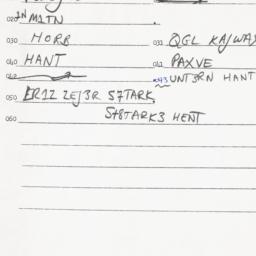 020 IN M1TN
030 HORB 031 QGL KAJWAS
040 HANT 041 PAXVE
042 043 UNT3RN HANT
050 ER1Z ZEJ3R S7TARK
060 S7STARK3 HENT